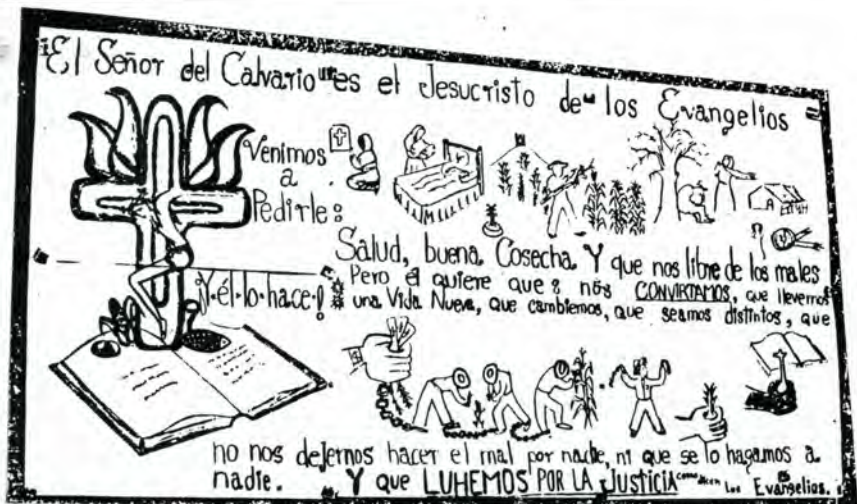 El Señor del Calvario es el Jesucristo de los Evangelios
Venimos
a
Pedirle:
Salud, buena Cosecha. Y que nos libre de los males
Y él lo hace!
Pero él quiere que: nos CONVIRTAMOS, que llevemos
una Vida Nueva, que cambiemos, que seamos distintos, que
no nos dejemos hacer el mal por nadie, ni que se lo hagamos a
nadie. Y que LUHEMOS POR LA JUSTICIA como dicen los Evangelios.